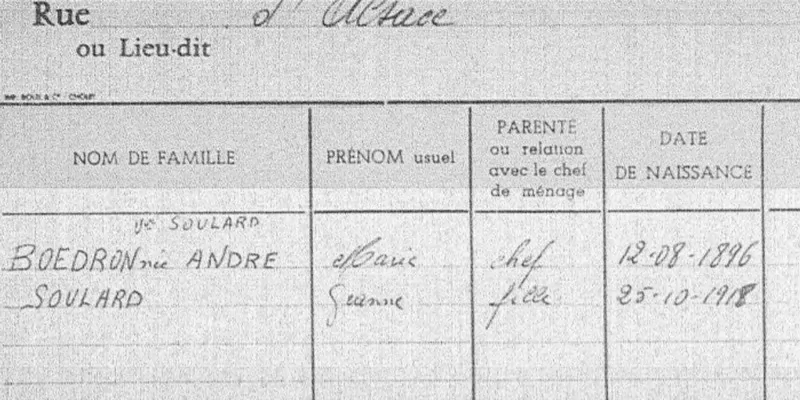 Rue d'Alsace
ou Lieu-dit
NOM DE FAMILLE PRÉNOM usuel PARENTÉ ou relation avec le chef de ménage DATE DE NAISSANCE
ve SOULARD
BOEDRON née ANDRE Marie chef 12-08-1896
SOULARD fille 25-10-1918